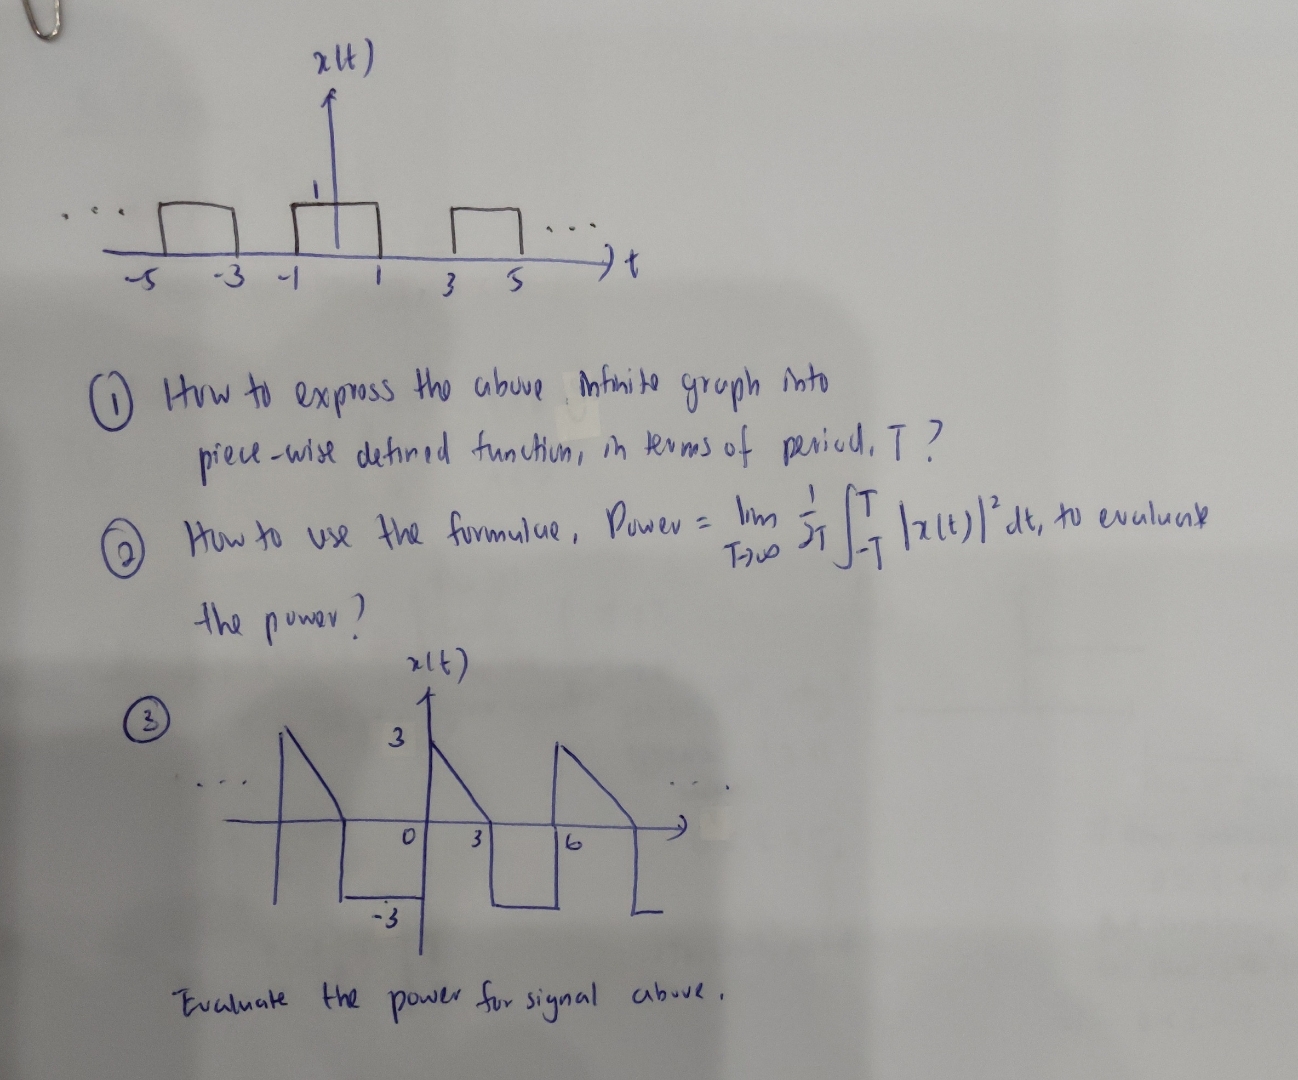 x(t)
1
-5 -3 -1 1 3 5 t
① How to express the above infinite graph into
piece-wise defined function, in terms of period, T?
② How to use the formulae, Power = lim T→∞ 1/2T ∫_{-T}^{T} |x(t)|² dt, to evaluate
the power?
x(t)
③
3
0 3 6
-3
Evaluate the power for signal above.